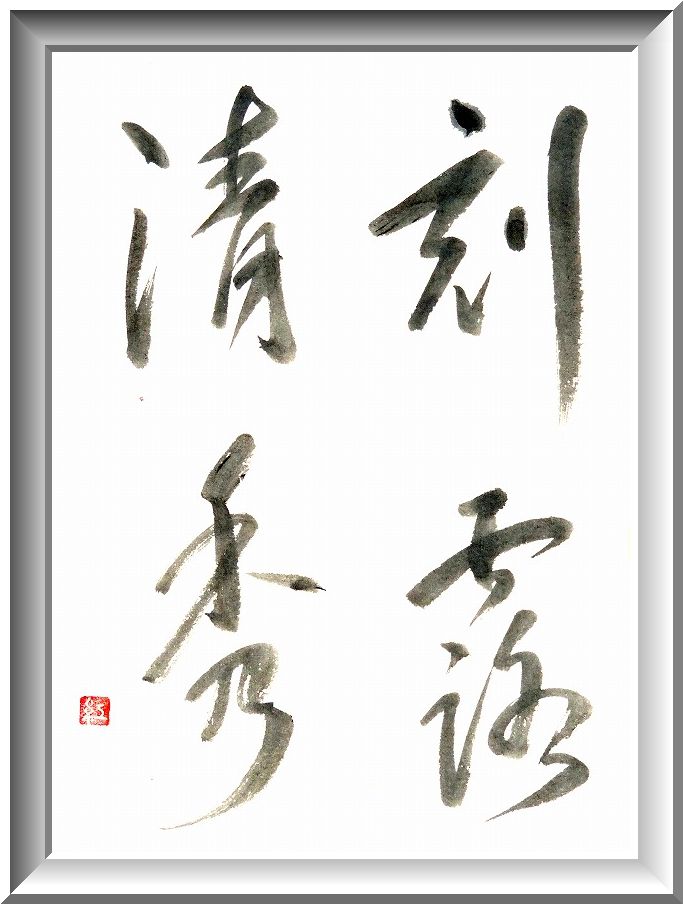 刻露
清秀